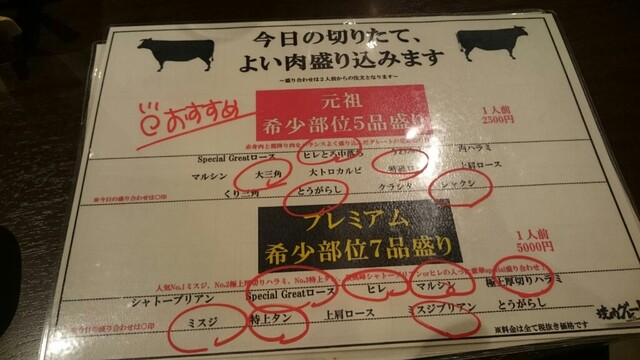 今日の切りたて、
よい肉盛り込みます
～盛り合わせは2人前からの注文となります～
おすすめ
元祖
希少部位5品盛り
1人前
2500円
Special Greatロース ヒレとろ中落ち 肉ハラミ
マルシン 大三角 大トロカルビ 上肩ロース
くり三角 とうがらし クラシタ シャクシ
※今日の盛り合わせは〇印
プレミアム
希少部位7品盛り
1人前
5000円
人気No.1ミスジ、No.2極上厚切りハラミ、No.3特上タン
シャトーブリアン Special Greatロース ヒレ マルシン 極上厚切りハラミ
ミスジ 特上タン 上肩ロース ミスジブリアン とうがらし
※今日の盛り合わせは〇印
※料金は全て税抜き価格です